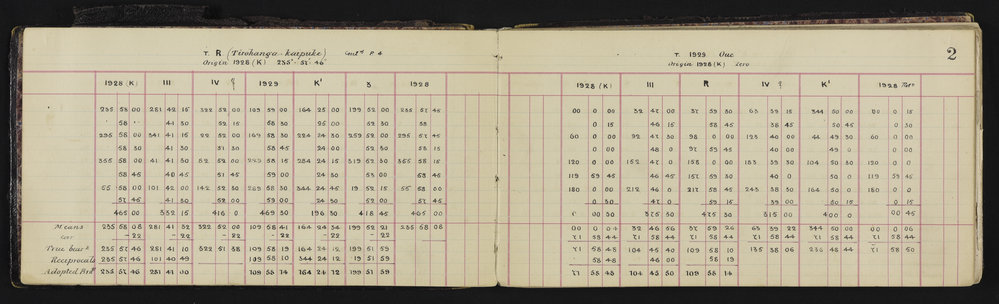 T. R (Tirohanga-kaipuke) Cont^d P 4
Origin 1928 (K) 235° 57' 46
1928 (K) III IV 1929 K' 3 1928
235 58 00 281 42 15 322 52 00 109 59 00 164 25 00 199 52 00 235 57 45
58 41 30 52 15 58 30 25 00 52 30 58
295 58 00 341 41 15 22 52 00 169 58 30 224 24 30 259 52 00 295 57 45
58 30 41 30 51 30 58 45 24 00 52 30 58 15
355 58 00 41 41 30 82 52 00 229 58 15 284 24 15 319 52 30 355 58 15
58 45 40 45 51 45 59 00 24 30 52 00 58 45
55 58 00 101 42 00 142 52 30 289 58 30 344 24 45 19 52 15 55 58 00
57 45 41 30 52 00 59 00 24 30 52 00 57 45
465 00 332 15 416 0 469 30 196 30 418 45 465 00
Means 235 58 08 281 41 32 322 52 00 109 58 41 164 24 34 199 52 21 235 58 08
Corr -22 -22 -22 -22 -22 -22
True bear^s 235 57 46 281 41 10 322 51 38 109 58 19 164 24 12 199 51 59
Reciprocals 235 57 46 101 40 49 109 58 10 344 24 12 19 51 59
Adopted Br^gs 235 57 46 281 41 00 109 58 14 164 24 12 199 51 59
2
T. 1929 Oue
Origin 1928 (K) Zero
1928 (K) III R IV K' 1928 Zero
00 0 00 32 47 00 37 59 30 63 39 15 344 50 00 00 0 15
0 15 46 15 58 45 38 45 50 45 0 30
60 0 00 92 47 30 98 0 00 123 40 00 44 49 30 60 0 00
0 00 48 0 97 59 45 40 00 49 0 0 00
120 0 00 152 47 0 158 0 00 183 39 30 104 50 30 120 0 0
119 59 45 46 45 157 59 30 40 0 50 0 119 59 45
180 0 00 212 46 0 217 59 15 243 38 30 164 50 0 180 0 0
0 00 45 0 58 45 39 00 50 15 0 15
0 00 30 375 30 475 30 315 00 400 0 00 45
00 0 04 32 46 56 37 59 26 63 39 22 344 50 00 00 0 06
71 58 44 71 58 44 71 58 44 71 58 44 71 58 44 71 58 44
71 58 48 104 45 40 109 58 10 135 38 06 236 48 44 71 58 50
58 48 46 00 58 19
71 58 48 104 45 50 109 58 14